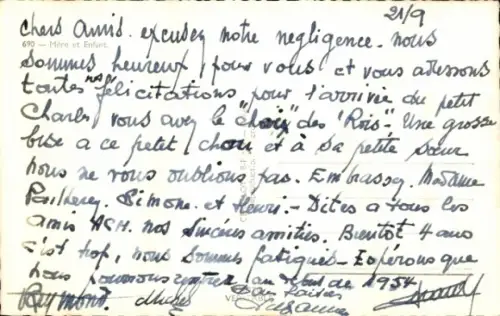 21/9
chers Amis. excusez notre negligence. nous
690 — Mère et Enfant.
sommes heureux, pour vous et vous adressons
toutes nos félicitations pour l'arrivée du petit
Charles, vous avez le "choix" des "Rois" Une grosse
bise a ce petit chou et à sa petite sœur
nous ne vous oublions pas. Embassez Madame
Simone. et Henri. - Dites a tous les
amis nos sincères amitiés. Bientôt 4 ans
c'est trop, nous sommes fatigués - Espérons que
nous pourrons rentrer au début de 1954
Bons baisers
Raymond. Suzanne